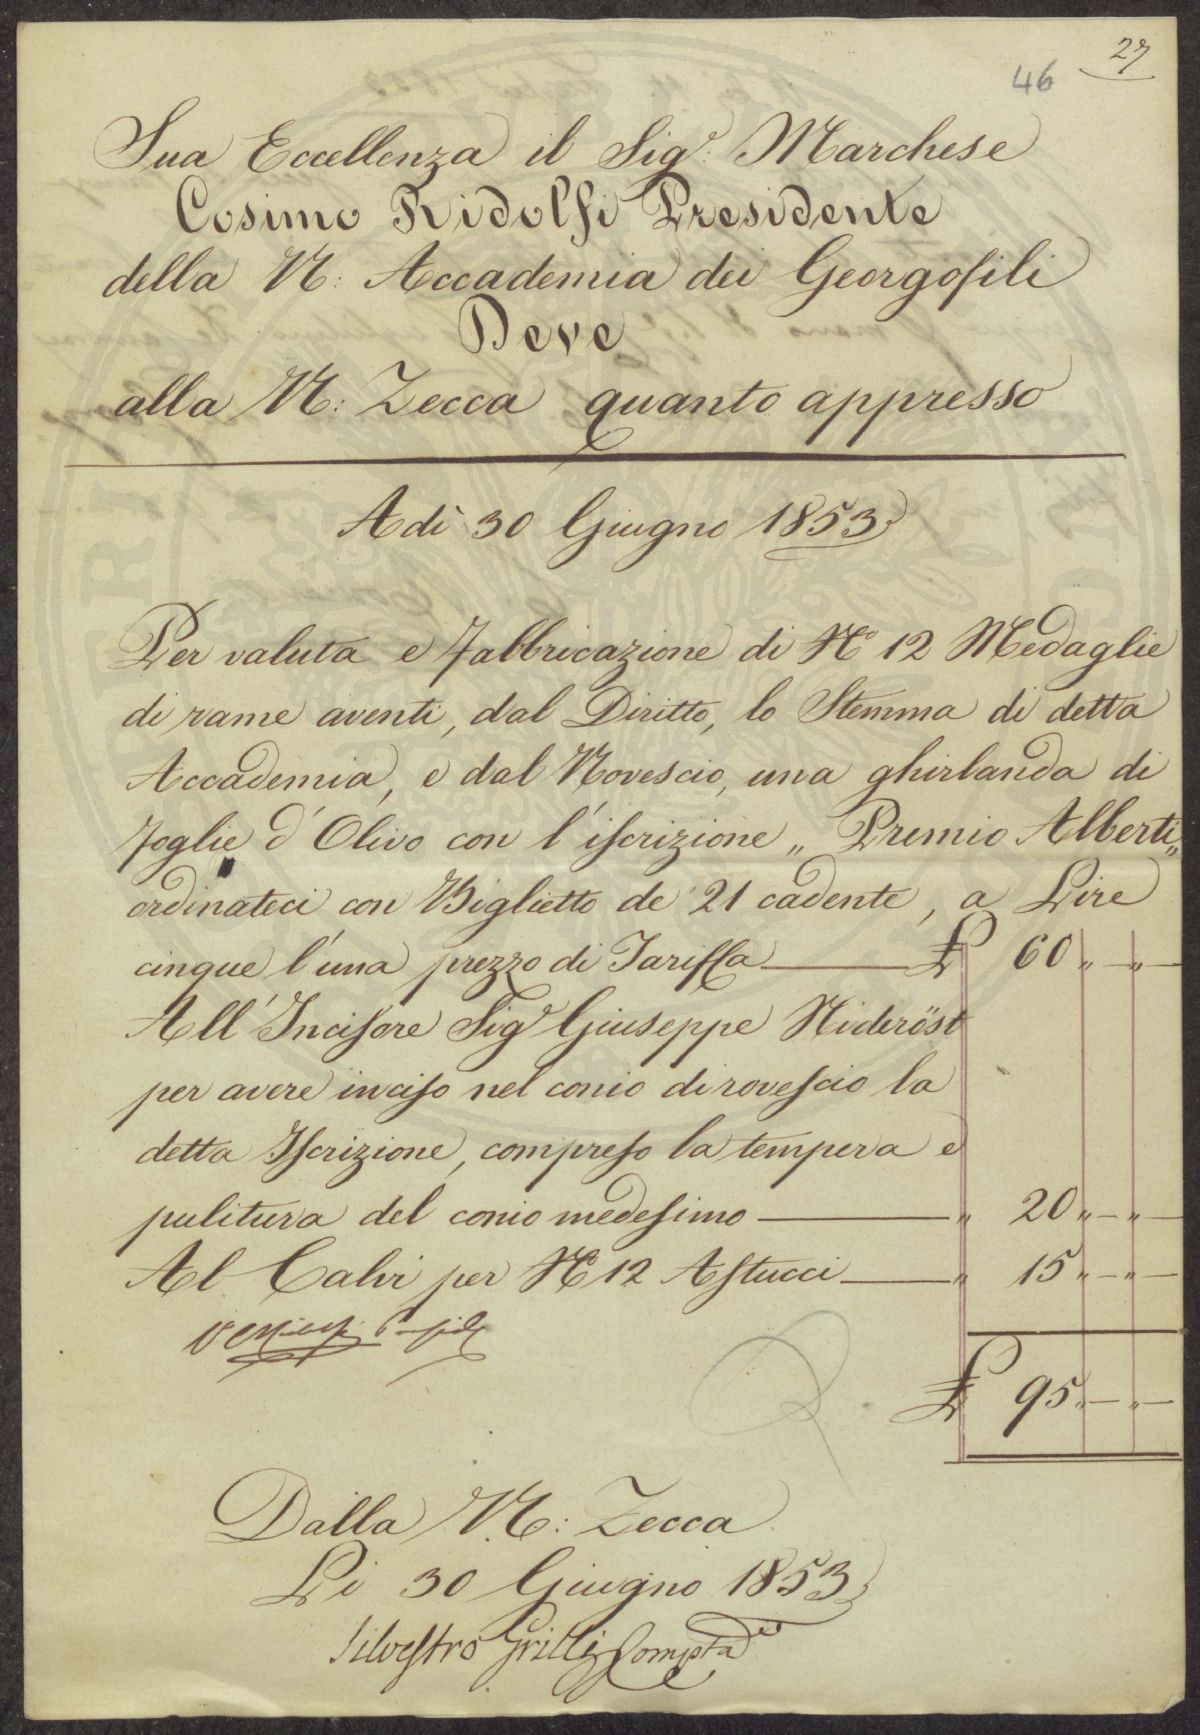 27
46
Sua Eccellenza il Sig.r Marchese
Cosimo Ridolfi Presidente
della R: Accademia dei Georgofili
Deve
alla R: Zecca quanto appresso
Adì 30 Giugno 1853
Per valuta e fabbricazione di No 12 Medaglie
di rame aventi, dal Diritto, lo Stemma di detta
Accademia, e dal Rovescio, una ghirlanda di
foglie d'Olivo con l'iscrizione „ Premio Alberti„
ordinateci con Biglietto de' 21 cadente, a Lire
cinque l'una prezzo di Tariffa — £ 60 „ — „ —
All'Incisore Sig.r Giuseppe Nideröst
per avere inciso nel conio di rovescio la
detta Iscrizione, compreso la tempera e
pulitura del conio medesimo — „ 20 „ — „ —
Al Calvi per No 12 Astucci — „ 15 „ — „ —
£ 95 „ — „ —
Dalla R: Zecca
Li 30 Giugno 1853
Silvestro Grilli